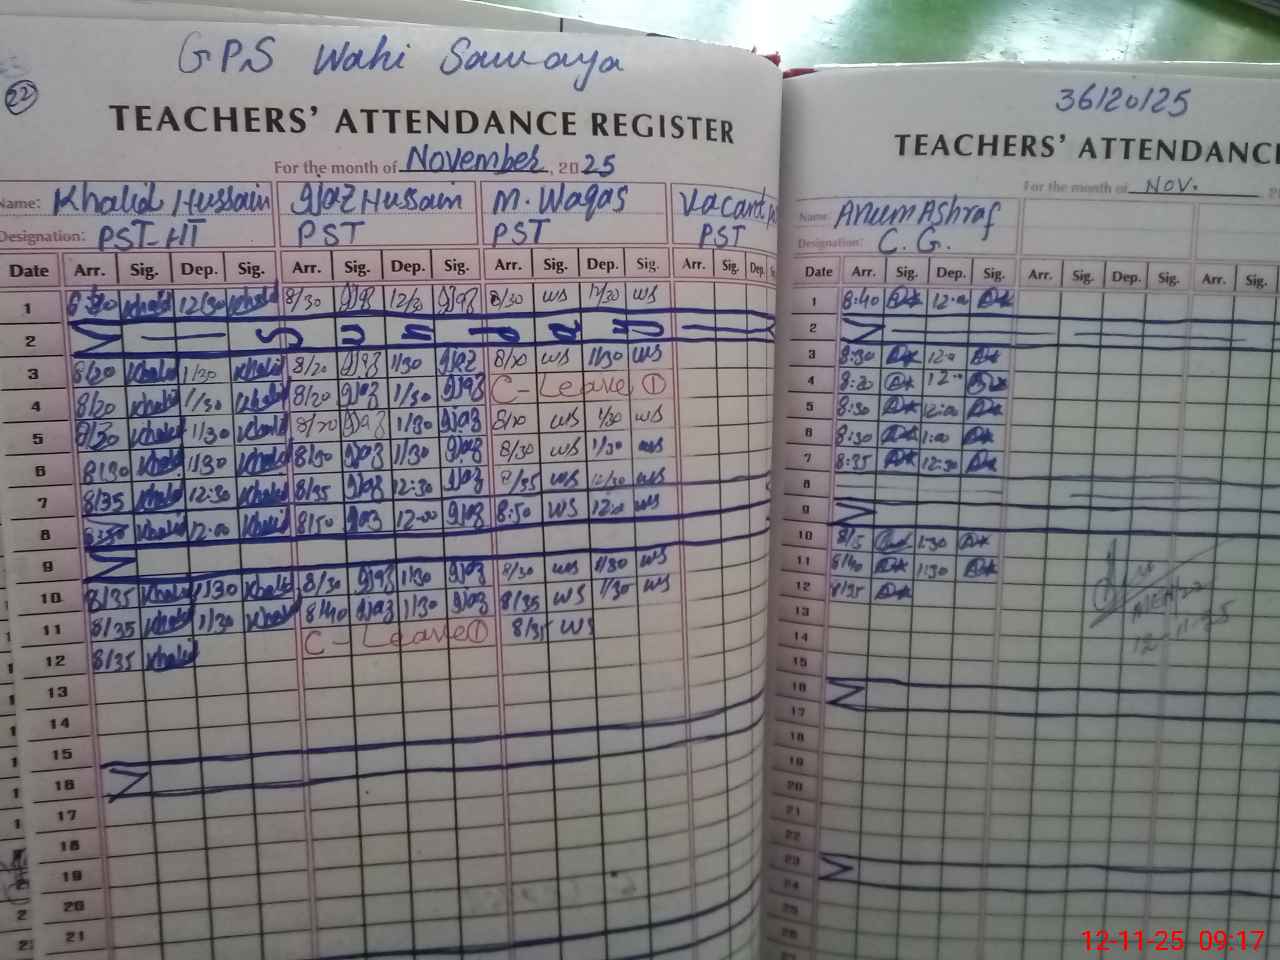 GPS Wahi Sawaya
22
TEACHERS' ATTENDANCE REGISTER
For the month of November, 2025
Name: Khalid Hussain Ijaz Hussain M. Waqas Vacant
Designation: PST-HT PST PST PST
Date Arr. Sig. Dep. Sig. Arr. Sig. Dep. Sig. Arr. Sig. Dep. Sig. Arr. Sig. Dep.
1 8:30 Khalid 12/30 Khalid 8/30 Ijaz 12/30 Ijaz 8/30 WS 12/30 WS
2 S U N D A Y
3 8/20 Khalid 1/30 Khalid 8/20 Ijaz 1/30 Ijaz 8/20 WS 1/30 WS
4 8/20 Khalid 1/30 Khalid 8/20 Ijaz 1/30 Ijaz C-Leave 1
5 8/20 Khalid 1/30 Khalid 8/20 Ijaz 1/30 Ijaz 8/20 WS 1/30 WS
6 8/30 Khalid 1/30 Khalid 8/30 Ijaz 1/30 Ijaz 8/30 WS 1/30 WS
7 8/35 Khalid 12:30 Khalid 8/35 Ijaz 12:30 Ijaz 8/35 WS 12/30 WS
8 Khalid 12:00 Khalid 8/50 Ijaz 12:00 Ijaz 8:50 WS 12:00 WS
9
10 8/35 Khalid 1/30 Khalid 8/30 Ijaz 1/30 Ijaz 8/30 WS 1/30 WS
11 8/35 Khalid 1/30 Khalid 8/40 Ijaz 1/30 Ijaz 8/35 WS 1/30 WS
12 8/35 Khalid C-Leave 1 8/35 WS
13
14
15
16
17
18
19
20
21
36120125
TEACHERS' ATTENDANC
For the month of Nov.
Name: Anum Ashraf
Designation: C.G.
Date Arr. Sig. Dep. Sig. Arr. Sig. Dep. Sig. Arr. Sig.
1 8:40 12:00
2
3 8:30
4 8:20
5 8:30 12:00
6 8:30 1:00
7 8:35 12:30
8
9
10 1:30
11 8/40 1:30
12 8/35
13
14
15
16
17
18
19
20
21
22
23
24
25
26
12-11-25
12-11-25 09:17